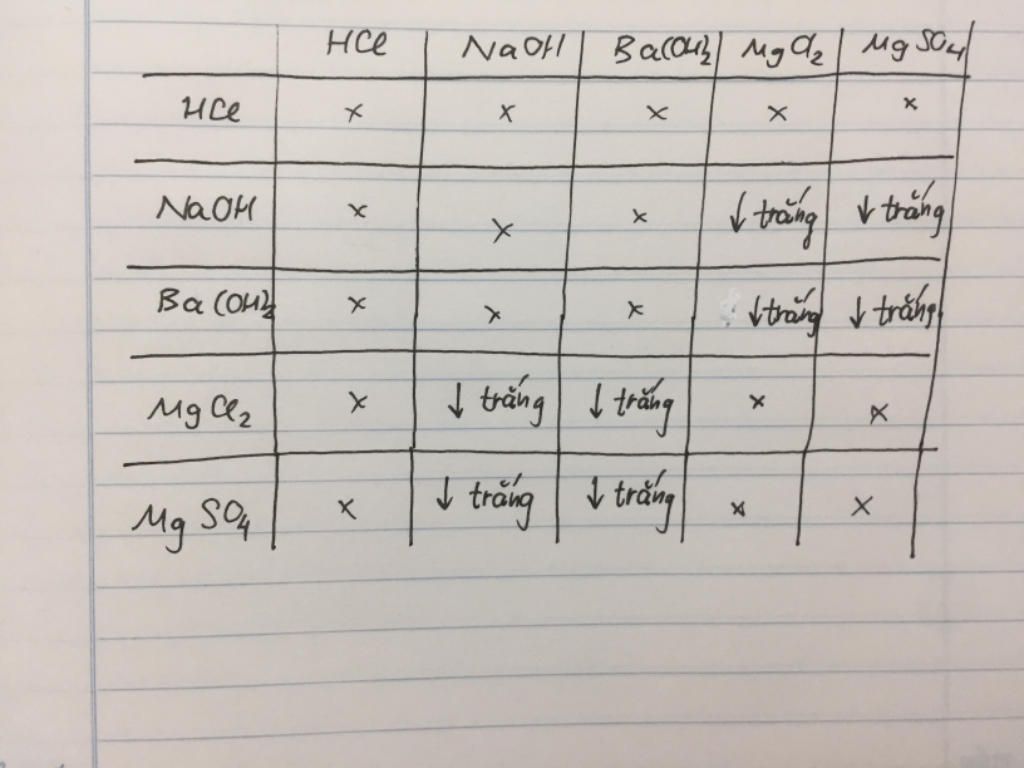 HCl NaOH Ba(OH)2 MgCl2 MgSO4
HCl x x x x x
NaOH x x x ↓ trắng ↓ trắng
Ba(OH)2 x x x ↓ trắng ↓ trắng
MgCl2 x ↓ trắng ↓ trắng x x
MgSO4 x ↓ trắng ↓ trắng x x